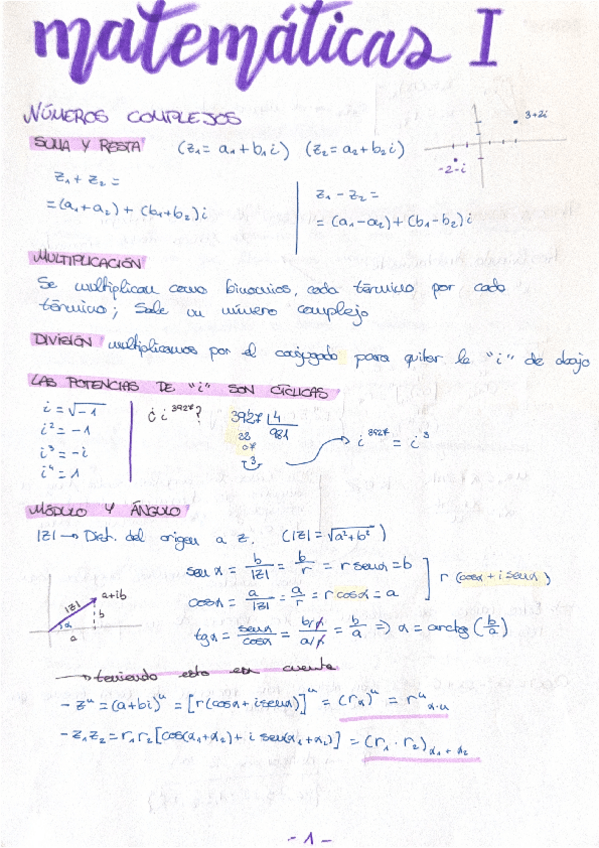 matemáticas I
NÚMEROS COMPLEJOS
SUMA Y RESTA (z₁ = a₁+b₁i) (z₂ = a₂+b₂i)
3+2i
-2-i
z₁ + z₂ =
= (a₁+a₂) + (b₁+b₂)i
z₁ - z₂ =
= (a₁-a₂) + (b₁-b₂)i
MULTIPLICACIÓN
Se multiplican como binomios, cada término por cada
término; Sale un número complejo
DIVISIÓN multiplicamos por el conjugado para quitar la "i" de abajo
LAS POTENCIAS DE "i" SON CÍCLICAS
i = √-1
i² = -1
i³ = -i
i⁴ = 1
¿i³⁹²⁷?
3927 | 4
38 981
07
3
i³⁹²⁷ = i³
MÓDULO Y ÁNGULO
|z| → Dist. del origen a z. (|z| = √a²+b²)
sen α = b/|z| = b/r = r sen α = b
cos α = a/|z| = a/r = r cos α = a
r (cos α + i sen α)
tg α = sen α/cos α = (b/r)/(a/r) = b/a ⇒ α = arctg (b/a)
a+ib
|z|
b
α
a
→ teniendo esto en cuenta
- zⁿ = (a+bi)ⁿ = [r(cos α + i sen α)]ⁿ = (r_α)ⁿ = rⁿ_α·n
- z₁z₂ = r₁r₂[cos(α₁+α₂) + i sen(α₁+α₂)] = (r₁ · r₂)_α₁+α₂
- 1 -